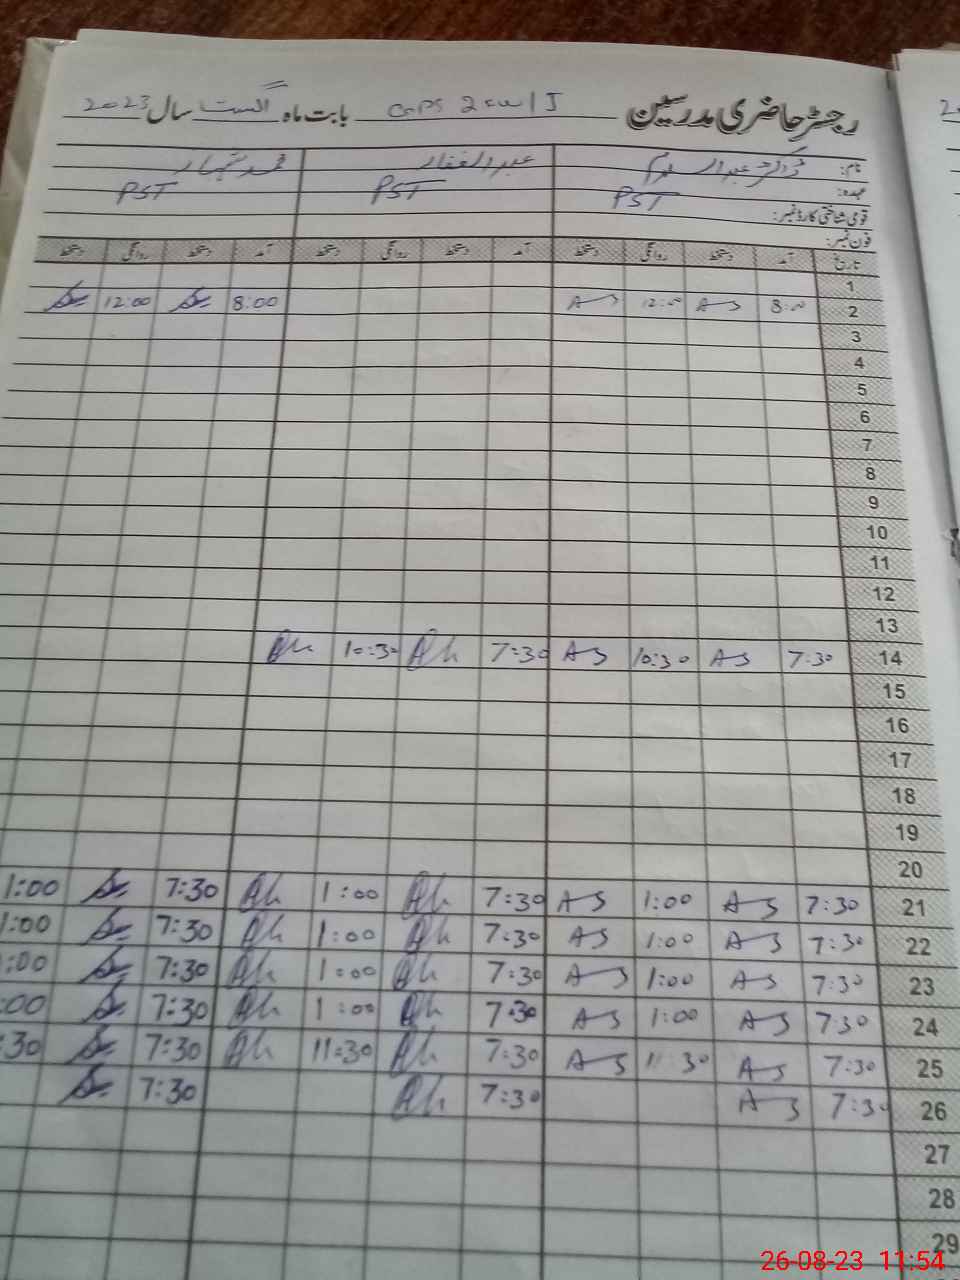 رجسٹر حاضری مدرسین GPS بابت ماہ اگست سال 2023
نام: ڈاکٹر عبدالسلام عبدالغفار محمد
عہدہ: PST PST PST
قومی شناختی کارڈ نمبر:
فون نمبر:
تاریخ آمد دستخط روانگی دستخط آمد دستخط روانگی دستخط آمد دستخط روانگی دستخط
1
2 8:00 AS 12:00 AS 8:00 12:00
3
4
5
6
7
8
9
10
11
12
13
14 7:30 AS 10:30 AS 7:30 Ah 10:30 Ah
15
16
17
18
19
20
21 7:30 AS 1:00 AS 7:30 Ah 1:00 Ah 7:30 1:00
22 7:30 AS 1:00 AS 7:30 Ah 1:00 Ah 7:30 1:00
23 7:30 AS 1:00 AS 7:30 Ah 1:00 Ah 7:30 :00
24 7:30 AS 1:00 AS 7:30 Ah 1:00 Ah 7:30 :00
25 7:30 AS 11:30 AS 7:30 Ah 11:30 Ah 7:30 :30
26 7:30 AS 7:30 Ah 7:30
27
28
29
26-08-23 11:54